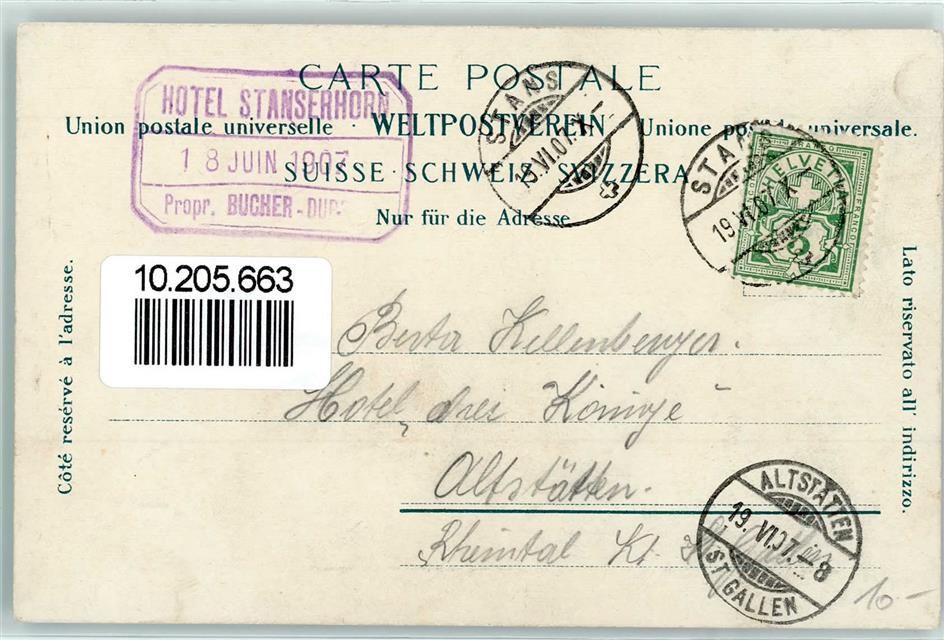 CARTE POSTALE
Union postale universelle · WELTPOSTVEREIN · Unione postale universale.
SUISSE · SCHWEIZ · SVIZZERA
Nur für die Adresse
HOTEL STANSERHORN
18 JUIN 1907
Propr. BUCHER-DUR
STANS
19.VI.07.X–
STANS
19.VI.07.X
FRANCO
HELVETIA
5
10.205.663
Côté resérvé à l'adresse.
Lato riservato all' indirizzo.
Berta Kellenberger.
Hotel drei Könige
Altstätten.
Rheintal Kt. St. Gallen
ALTSTÄTTEN
19.VI.07.–8
(ST. GALLEN)
10–